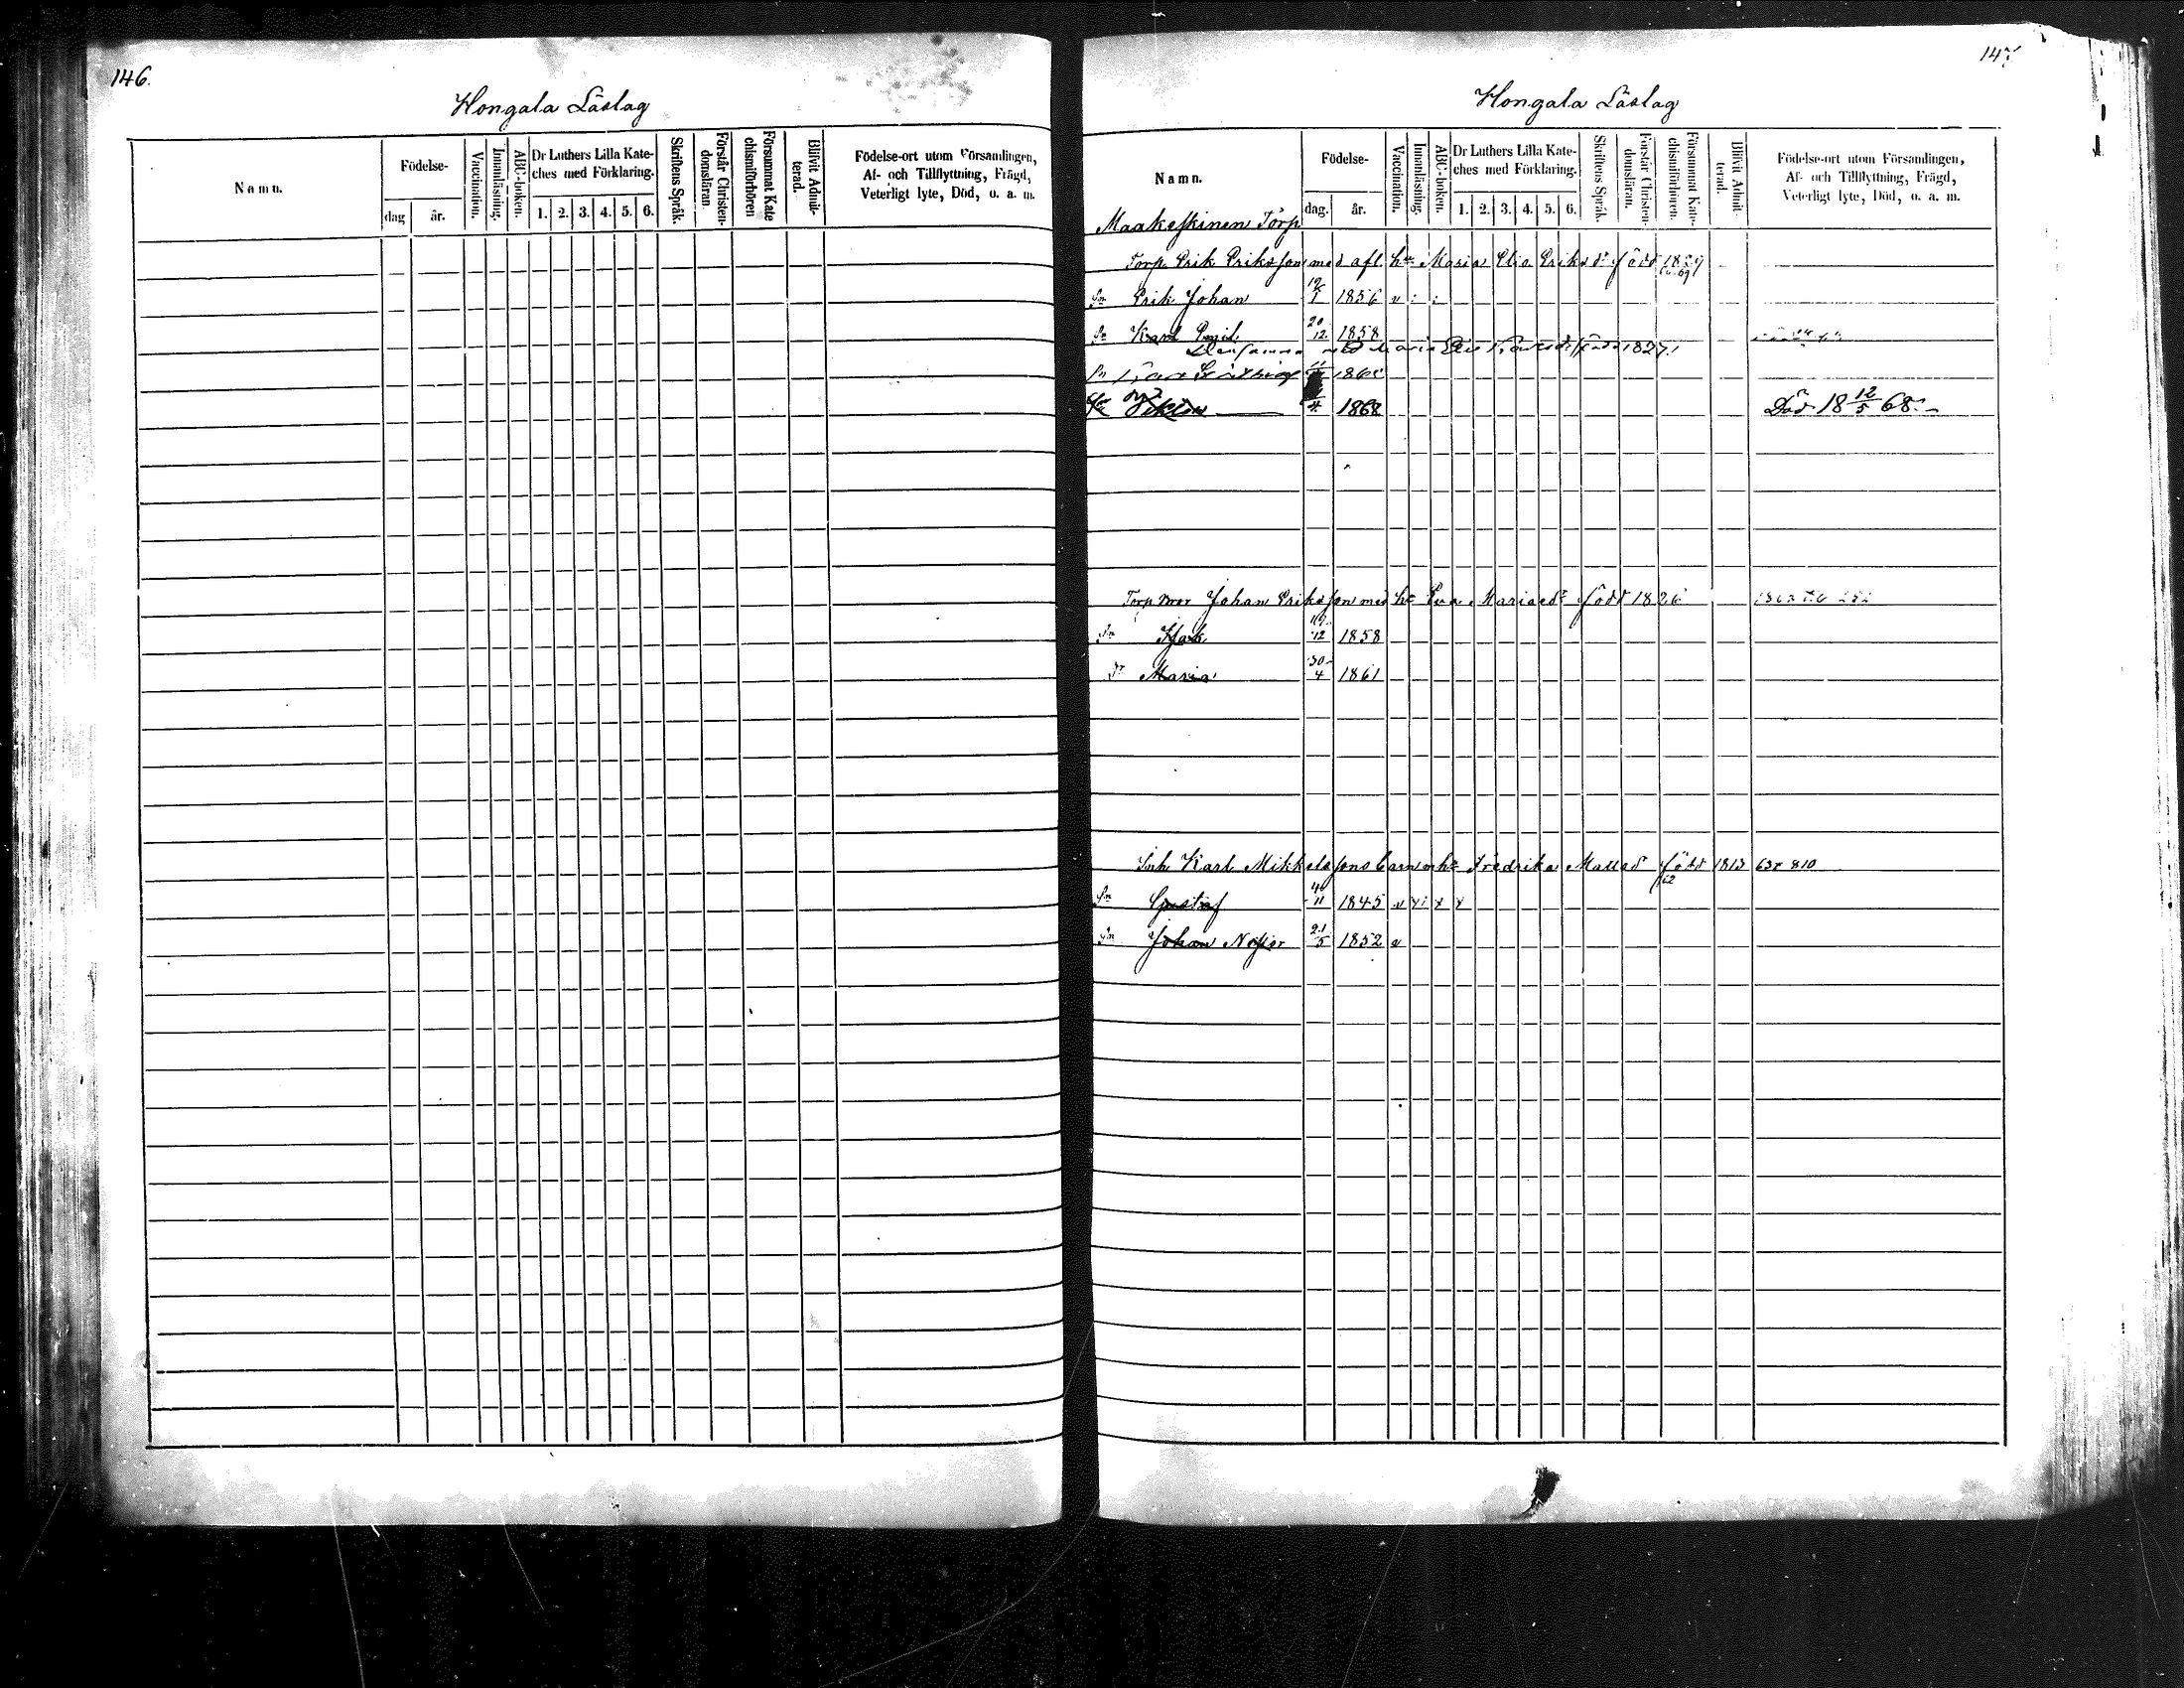 146.
Hongala Läslag
Namn.
Födelse-
dag
år.
Vaccination.
Innanläsning.
ABC-boken.
Dr Luthers Lilla Kate-
ches med Förklaring.
1. 2. 3. 4. 5. 6.
Skriftens Språk.
Förstår Christen-
domsläran.
Försummat Kate
chismiförhören
Blifvit Admit-
terad.
Födelse-ort utom Församlingen,
Af- och Tillflyttning, Frägd,
Veterligt lyte, Död, o. a. m.
147
Hongala Läslag
Namn.
Födelse-
dag.
år.
Vaccination.
Innanläsning.
ABC-boken.
Dr Luthers Lilla Kate-
ches med Förklaring.
1. 2. 3. 4. 5. 6.
Skriftens Språk.
Förstår Christen-
domsläran.
Försummat Kate-
chismiförhören.
Blifvit Admit-
terad.
Födelse-ort utom Församlingen,
Af- och Tillflyttning, Frägd,
Veterligt lyte, Död, o. a. m.
Maakeskinen Torp
Torp. Erik Eriksson med afl. hu Maria Elia Eriksdr född 1829
Sn Erik Johan 12/1 1856 v
Sn Karl Emil 20/12 1858
Densamma med Maria född 1827
Sn 1865
1868 Död 18 12/5 68.
Torp mor Johan Eriksson med hu Eva Mariaedr född 1826
Sn Isak 12 1858
dr Maria 30/4 1861
Inh Karl Mikkelssons barn m hu Fredrika Mattsdr född 1813 638 810
Sn Gustaf 4/11 1845 v x x x
Sn Johan 21/5 1852 v